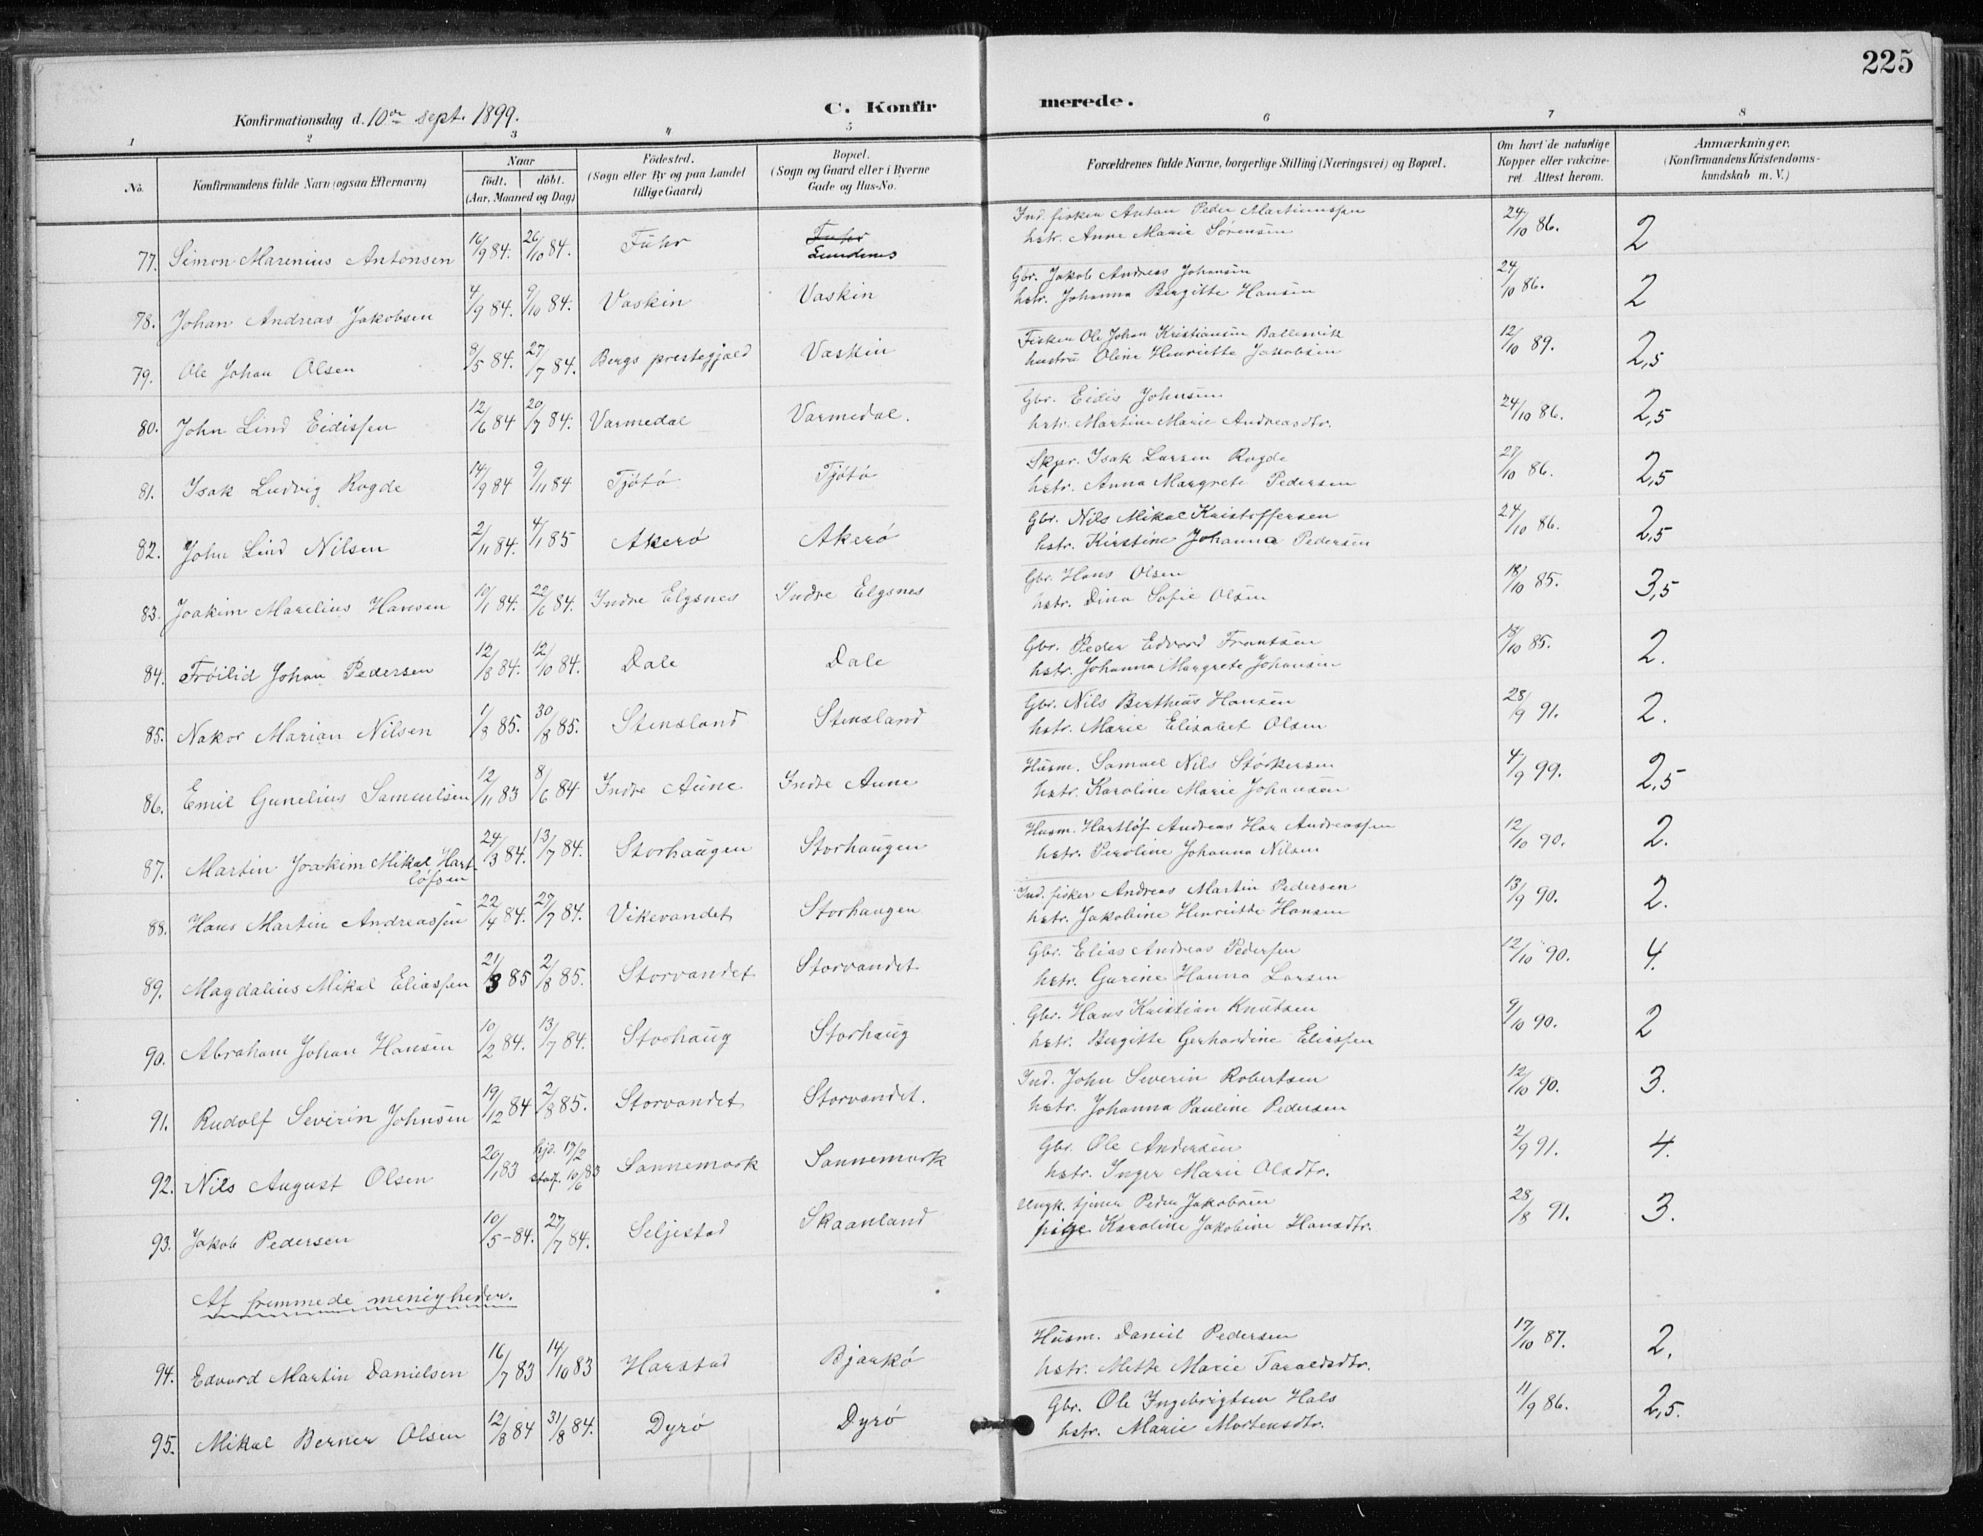 225
Konfirmationsdag d. 10de sept. 1899.
C. Konfirmerede.
1 2 3 4 5 6 7 8
No. Konfirmandens fulde Navn (ogsaa Efternavn) Naar födt. döbt. (Aar, Maaned og Dag) Födested. (Sogn eller By og paa Landet tillige Gaard) Bopæl. (Sogn og Gaard eller i Byerne Gade og Hus-No. Forældrenes fulde Navne, borgerlige Stilling (Næringsvei) og Bopæl. Om havt de naturlige Kopper eller vakcineret. Attest herom. Anmærkninger. (Konfirmandens Kristendomskundskab m. V.)
77. Simon Marenius Antonsen 16/9 84. 26/10 84. Fuhr Fuhr Lundenes Ind. fisker Anton Peder Martinussen hstr. Anne Marie Sörensen 24/10 86. 2
78. Johan Andreas Jakobsen 4/9 84. 9/10 84. Vaskin Vaskin Gbr. Jakob Andreas Johansen hstr. Johanna Birgitte Hansen 24/10 86. 2
79. Ole Johan Olsen 8/5 84. 27/7 84. Bergs prestegjæld Vaskin Fisker Ole Johan Kristiansen Ballesvik hustru Oline Henriette Jakobsen 12/10 89. 2,5
80. John Lind Eidissen 12/6 84 20/7 84. Varmedal Varmedal. Gbr. Eidis Johnsen hstr. Martine Marie Andreasdtr. 24/10 86. 2,5
81. Isak Ludvig Rogde 14/9 84 9/11 84 Tjötö Tjötö Skpr. Isak Larsen Rogde hstr. Anna Margrete Pedersen 27/10 86. 2,5
82. John Lind Nilsen 2/11 84. 4/1 85 Akerö Akerö Gbr. Nils Mikal Kristoffersen hstr. Kirstine Johanna Pedersen 24/10 86. 2,5
83. Joakim Marelius Hansen 10/1 84. 22/6 84. Indre Elgsnes Indre Elgsnes Gbr. Hans Olsen hstr. Dina Sofie Olsen 18/10 85. 3,5
84. Fröilid Johan Pedersen 12/8 84. 12/10 84. Dale Dale Gbr. Peder Edvard Frantsen hstr. Johanna Margrete Johansen 18/10 85. 2.
85. Nakor Marian Nilsen 1/3 85. 30/8 85. Stensland Stensland Gbr. Nils Bertheus Hansen hstr. Marie Elisabet Olsen 28/9 91. 2.
86. Emil Gunelius Samuelsen 12/11 83 8/6 84 Indre Aune Indre Aune Husm. Samuel Nils Störkersen hstr. Karoline Marie Johansen 4/9 99. 2,5
87. Martin Joakim Mikal Hartlöfsen 24/3 84. 13/7 84. Storhaugen Storhaugen Husm. Hartlöf Andreas Hov Andreassen hstr. Peroline Johanna Nilsen 12/10 90. 2.
88. Hans Martin Andreassen 22/4 84. 27/7 84. Vikevandet Storhaugen Ind. fisker Andreas Martin Pedersen hstr. Jakobine Henriette Hansen 13/9 90. 2.
89. Magdalius Mikal Eliassen 21/3 85 2/8 85. Storvandet Storvandet Gbr. Elias Andreas Pedersen hstr. Gurine Hanna Larsen 12/10 90. 4.
90. Abraham Johan Hansen 10/2 84. 13/7 84. Storhaug Storhaug Gbr. Hans Kristian Knutsen hstr. Birgitte Gerhardine Eliassen 9/10 90. 2
91. Rudolf Severin Johnsen 19/12 84 2/8 85. Storvandet Storvandet. Ind. John Severin Robertsen hstr. Johanna Pauline Pedersen 12/10 90. 3.
92. Nils August Olsen 20/1 83 hjd. 17/2 stadf. 10/6 83 Sannemark Sannemark Gbr. Ole Andersen hstr. Inger Marie Olsdtr. 2/9 91. 4.
93. Jakob Pedersen 10/5-84. 27/7 84. Seljestad Skaanland Ungk. tjener Peder Jakobsen pige Karoline Jakobine Hansdtr. 28/8 91. 3.
Af fremmede menigheder.
94. Edvard Martin Danielsen 16/7 83 14/10 83 Harstad Bjarkö Husm. Daniel Pedersen hstr. Mette Marie Taraldsdtr. 17/10 87. 2.
95. Mikal Berner Olsen 12/8 84 31/8 84. Dyrö Dyrö Gbr. Ole Ingebrigtsen Hals hstr. Marie Mortensdtr. 11/9 86. 2,5.